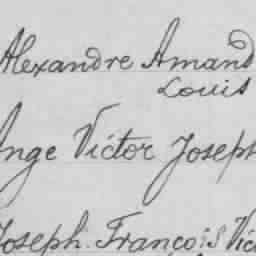 Alexandre Amand
Louis
Ange Victor Joseph
Joseph François Vic